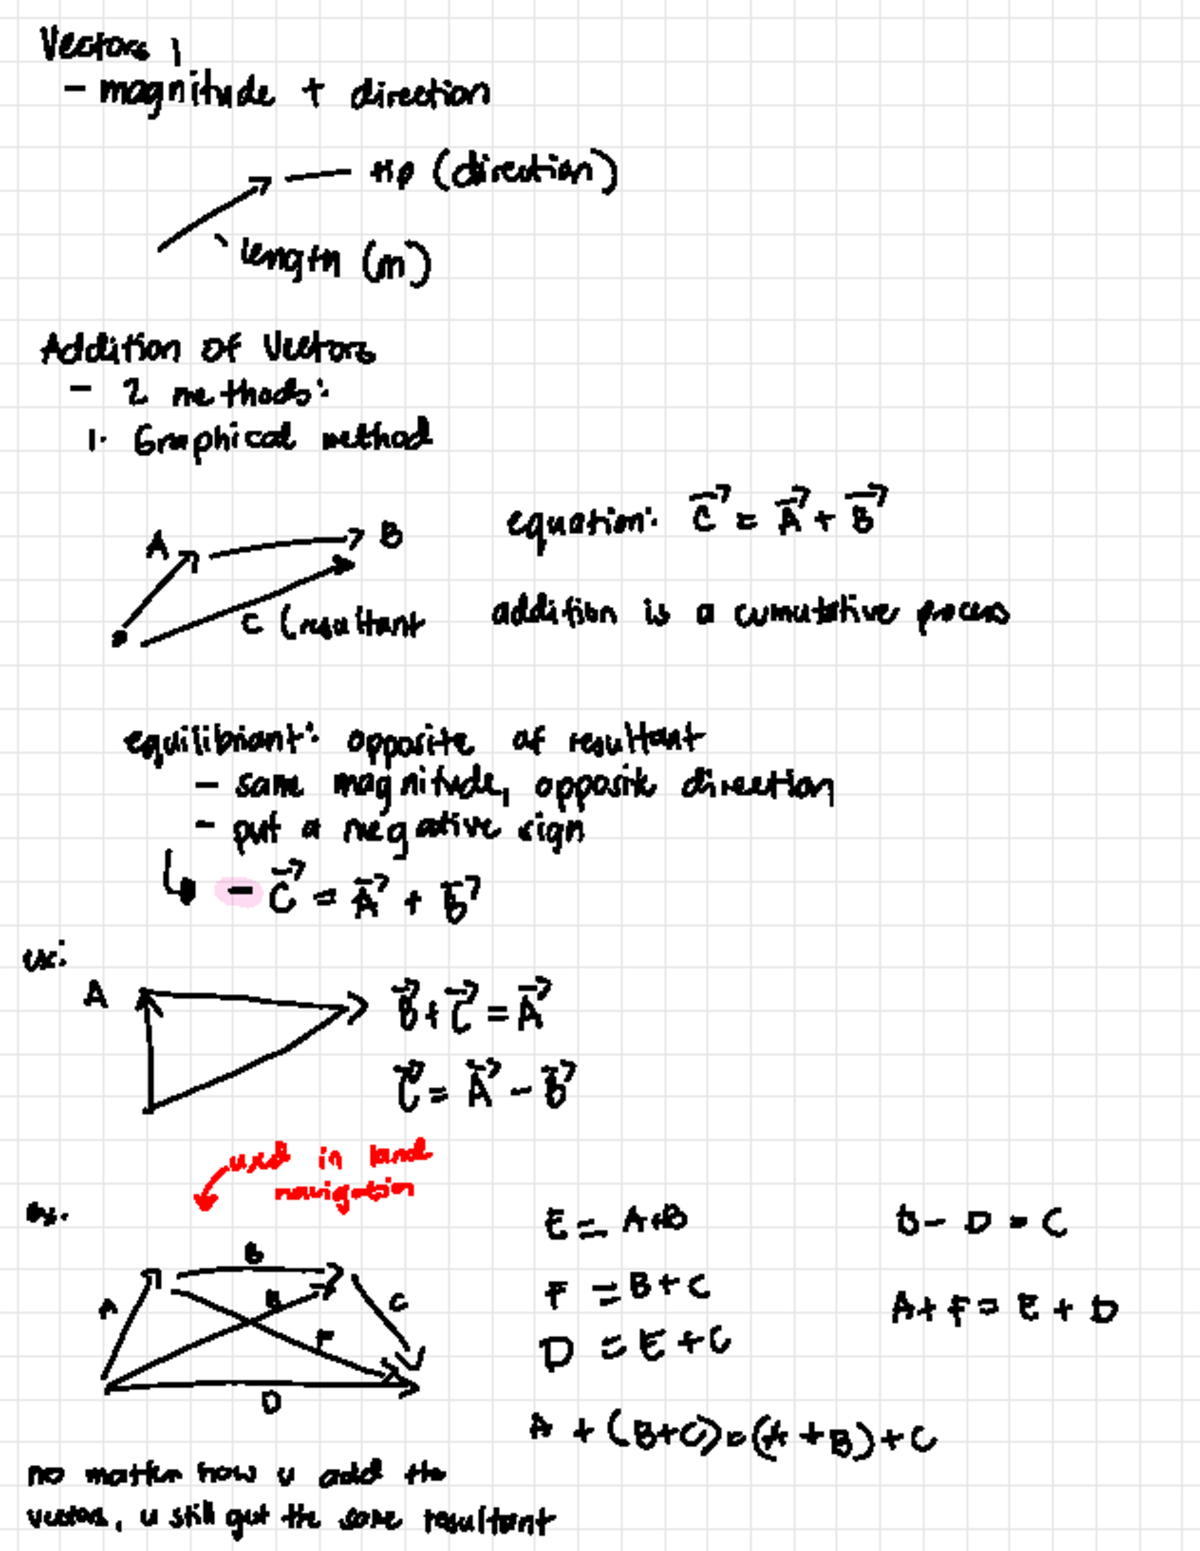 Vectors 1
- magnitude + direction
tip (direction)
length (m)
Addition of Vectors
- 2 methods:
1. Graphical method
A
B
C (resultant
equation: C = A + B
addition is a cumutative process
equilibriant: opposite of resultant
- same magnitude, opposite direction
- put a negative sign
- C = A + B
ex:
A
B + C = A
C = A - B
used in land
navigation
ex.
B
A
E
C
F
D
E = A+B
F = B+C
D = E+C
B - D = C
A + F = E + D
A + (B+C) = (A+B)+C
no matter how u add the
vectors, u still get the same resultant